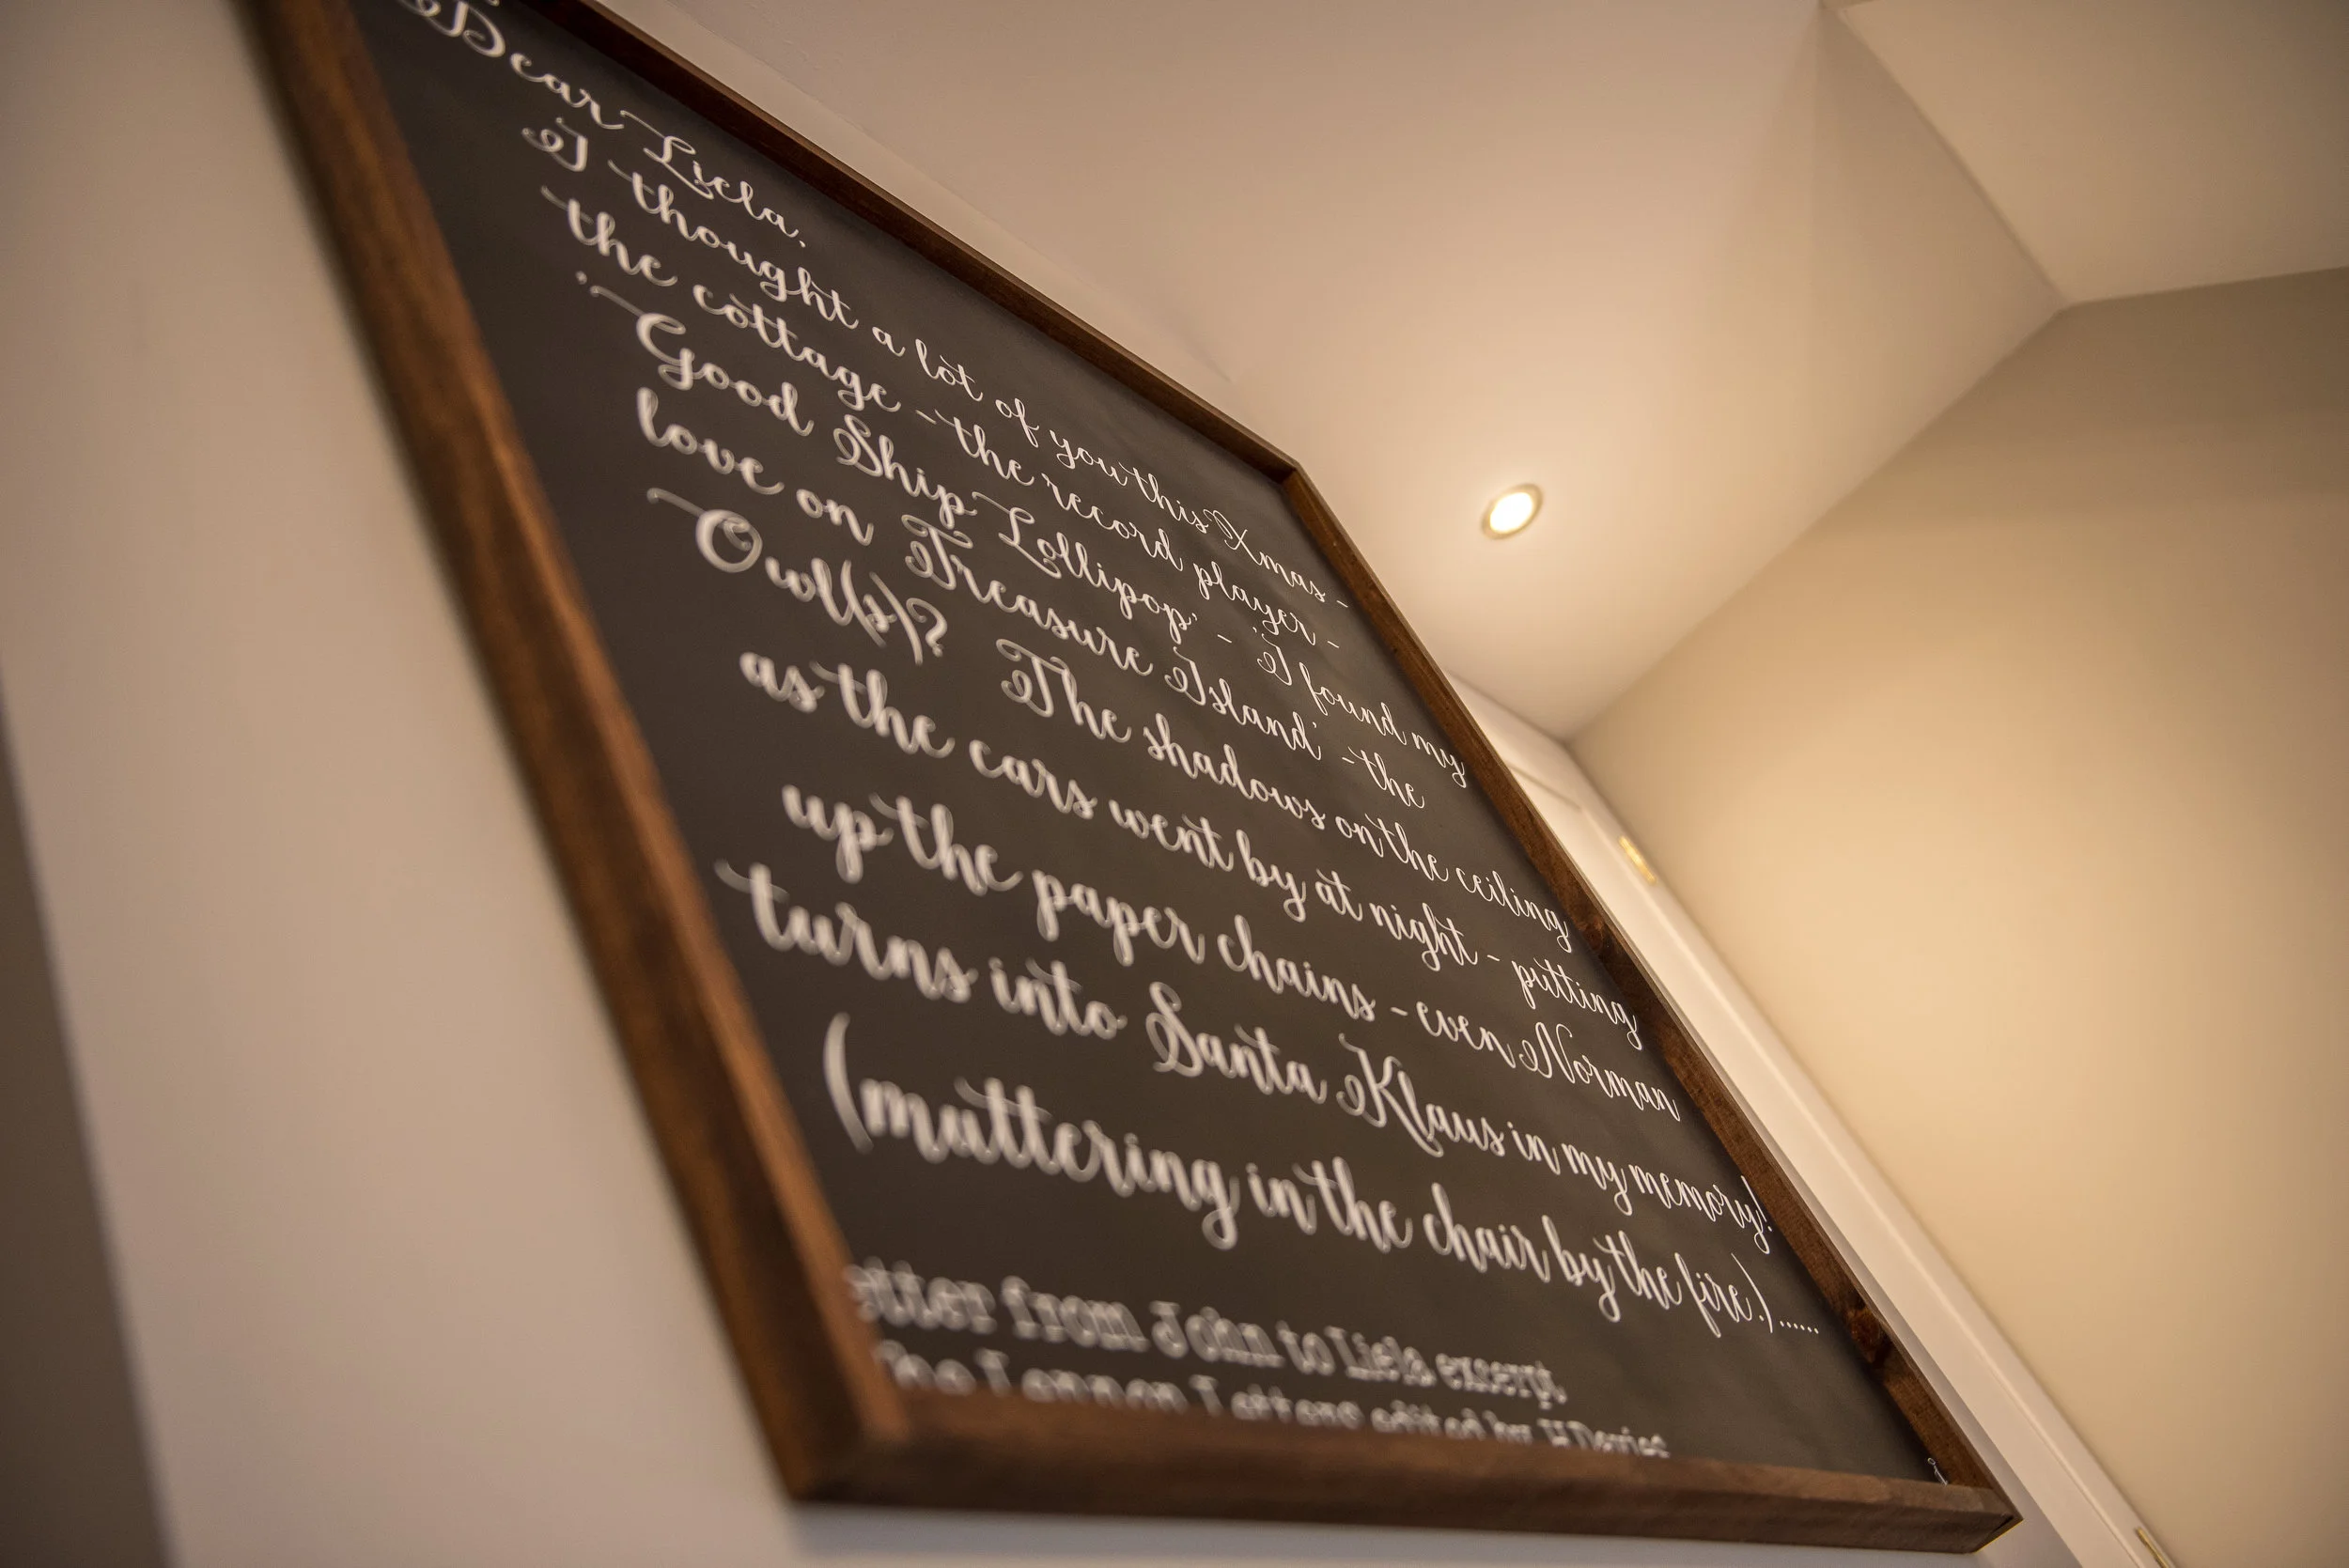 Dear Liela,
I thought a lot of you this Xmas -
the cottage - the record player -
'Good Ship Lollipop' - 'I found my
love on Treasure Island' - the
Owl(s)? The shadows on the ceiling
as the cars went by at night - putting
up the paper chains - even Norman
turns into Santa Klaus in my memory!
(muttering in the chair by the fire.)......
etter from John to Liela exserpt
The Lennon Letters edited by H Davies